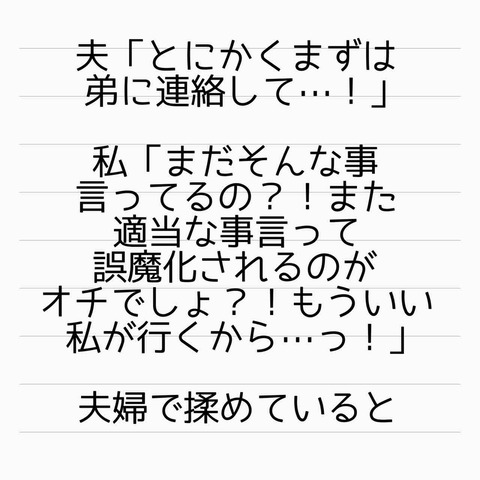 夫「とにかくまずは
弟に連絡して…！」
私「まだそんな事
言ってるの？！また
適当な事言って
誤魔化されるのが
オチでしょ？！もういい
私が行くから…っ！」
夫婦で揉めていると